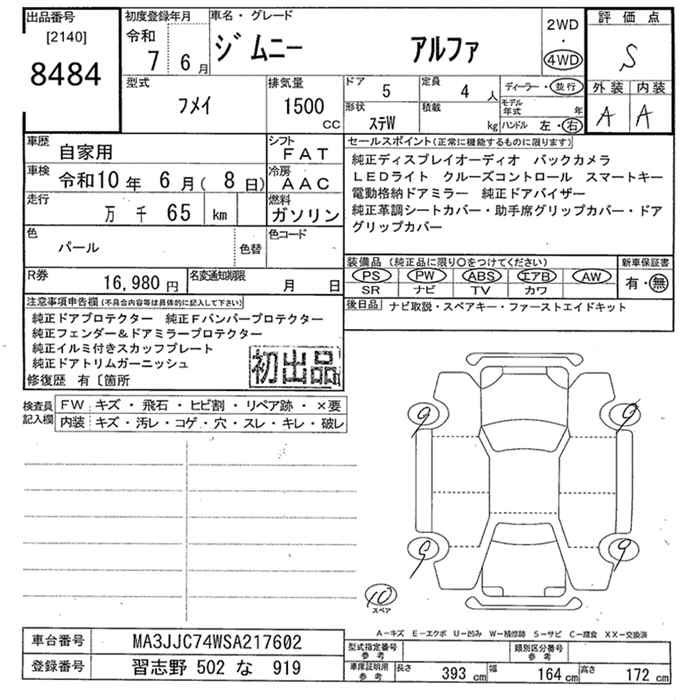 出品番号
[2140]
8484
初度登録年月
令和
7 6月
車名・グレード
ジムニー アルファ
2WD
・
4WD
評価点
S
外装 内装
A A
型式
フメイ
排気量
1500
cc
ドア
5
定員
4人
ディーラー・並行
形状
ステW
積載
kg
モデル年式 年
ハンドル 左・右
車歴
自家用
シフト
FAT
車検
令和10年 6月( 8日)
冷房
AAC
走行
万 千 65 km
燃料
ガソリン
色
パール
色替
色コード
R券
16,980円
名変通知期限
月 日
セールスポイント(正常に機能するものに限ります)
純正ディスプレイオーディオ バックカメラ
LEDライト クルーズコントロール スマートキー
電動格納ドアミラー 純正ドアバイザー
純正革調シートカバー・助手席グリップカバー・ドア
グリップカバー
装備品(純正品に限り○をつけてください)
PS PW ABS エアB AW
SR ナビ TV カワ
新車保証書
有・無
後日品 ナビ取説・スペアキー・ファーストエイドキット
注意事項申告欄(不具合内容等は具体的に記入して下さい)
純正ドアプロテクター 純正Fバンパープロテクター
純正フェンダー&ドアミラープロテクター
純正イルミ付きスカッフプレート
純正ドアトリムガーニッシュ
修復歴 有〔箇所
初出品
検査員
記入欄
FW キズ・飛石・ヒビ割・リペア跡・×要
内装 キズ・汚レ・コゲ・穴・スレ・キレ・破レ
9 9
9 9
10
スペア
A−キズ E−エクボ U−凹み W−補修跡 S−サビ C−腐食 XX−交換済
車台番号 MA3JJC74WSA217602
登録番号 習志野 502 な 919
型式指定番号
参考
類別区分番号
参考
車庫証明用
参考
長さ 393 cm 幅 164 cm 高さ 172 cm